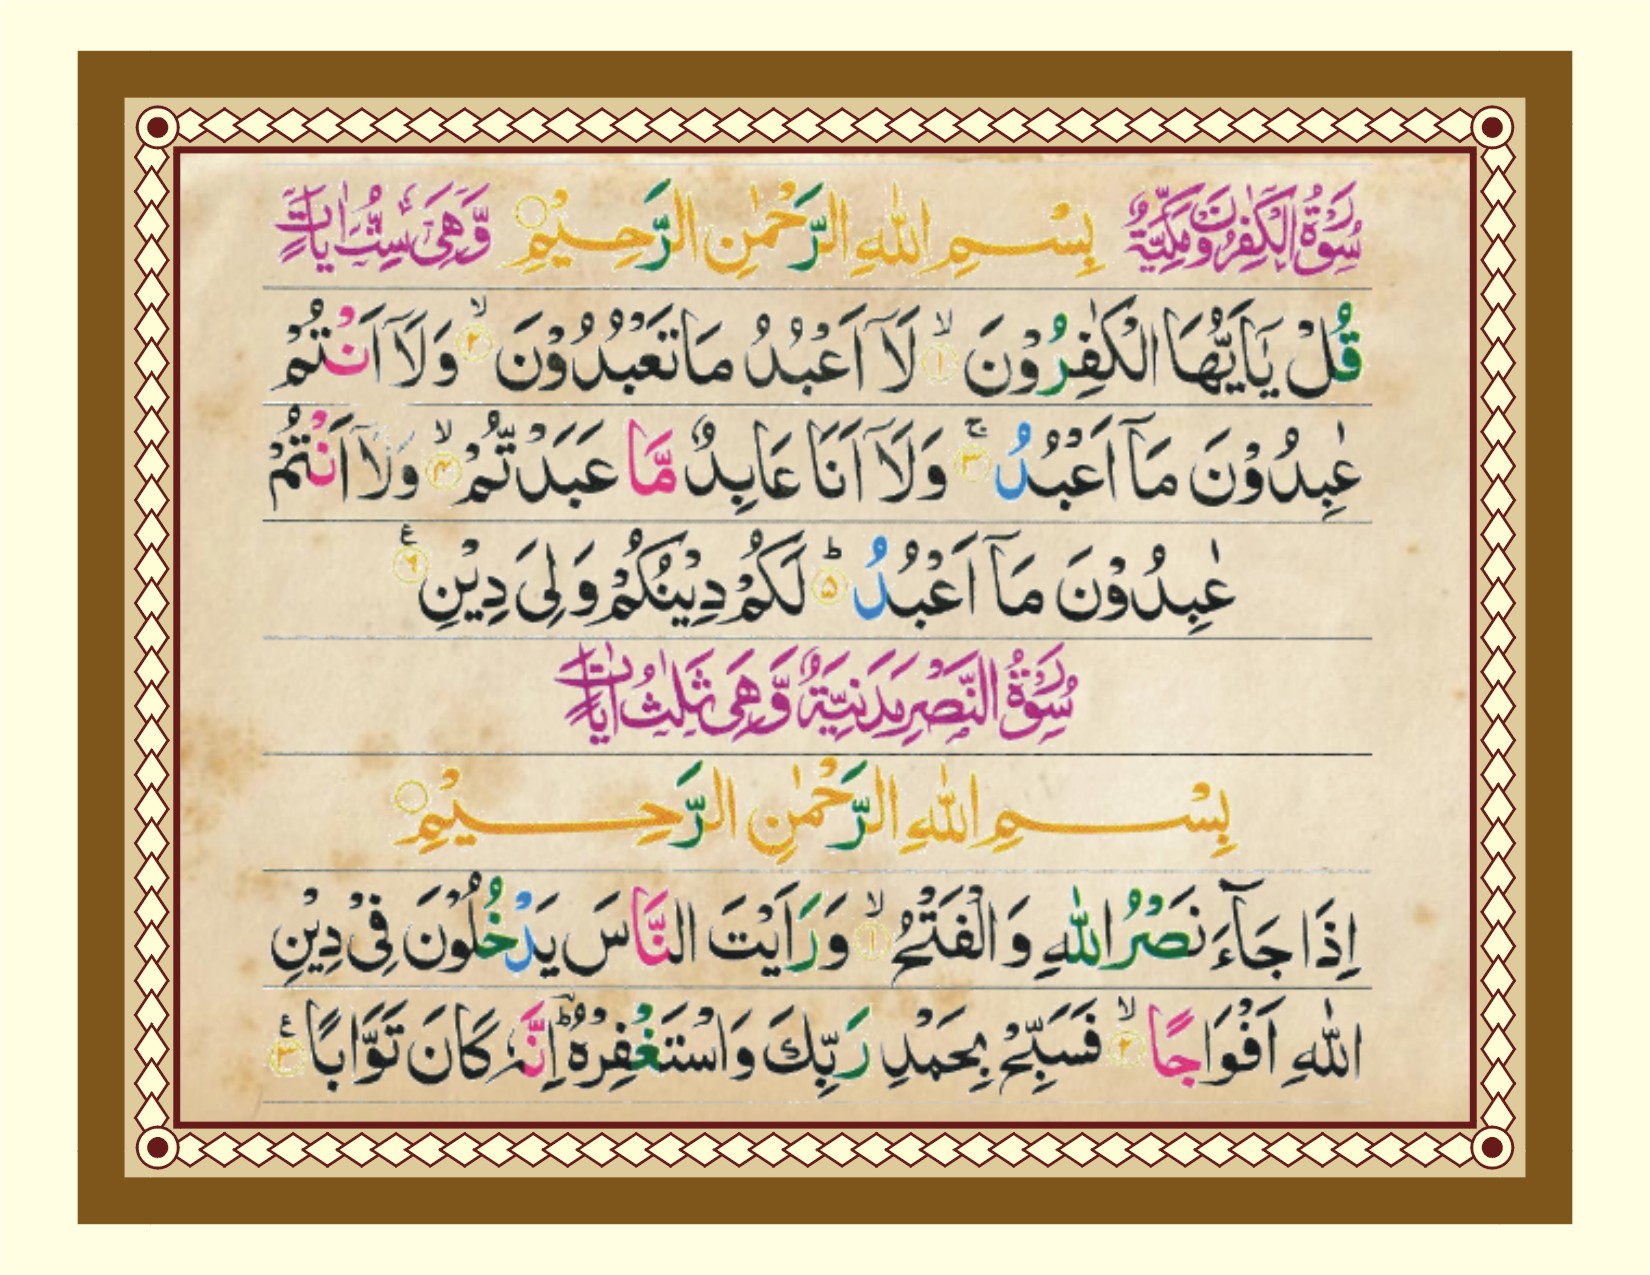 سُوْرَةُ الْكٰفِرُوْنَ مَكِّيَّةٌ بِسْمِ اللّٰهِ الرَّحْمٰنِ الرَّحِيْمِ ۝ وَّهِىَ سِتُّ اٰيَاتٍ
قُلْ يٰۤاَيُّهَا الْكٰفِرُوْنَ ۙ﴿۱﴾ لَاۤ اَعْبُدُ مَا تَعْبُدُوْنَ ۙ﴿۲﴾ وَلَاۤ اَنْتُمْ
عٰبِدُوْنَ مَاۤ اَعْبُدُ ۚ﴿۳﴾ وَلَاۤ اَنَا عَابِدٌ مَّا عَبَدْتُّمْ ۙ﴿۴﴾ وَلَاۤ اَنْتُمْ
عٰبِدُوْنَ مَاۤ اَعْبُدُ ؕ﴿۵﴾ لَكُمْ دِيْنُكُمْ وَلِىَ دِيْنِ ﴿۶﴾ ع
سُوْرَةُ النَّصْرِ مَدَنِيَّةٌ وَّهِىَ ثَلٰثُ اٰيَاتٍ
بِسْمِ اللّٰهِ الرَّحْمٰنِ الرَّحِيْمِ ۝
اِذَا جَآءَ نَصْرُ اللّٰهِ وَالْفَتْحُ ۙ﴿۱﴾ وَرَاَيْتَ النَّاسَ يَدْخُلُوْنَ فِىْ دِيْنِ
اللّٰهِ اَفْوَاجًا ۙ﴿۲﴾ فَسَبِّحْ بِحَمْدِ رَبِّكَ وَاسْتَغْفِرْهُ ؕ اِنَّهٗ كَانَ تَوَّابًا ﴿۳﴾ ع